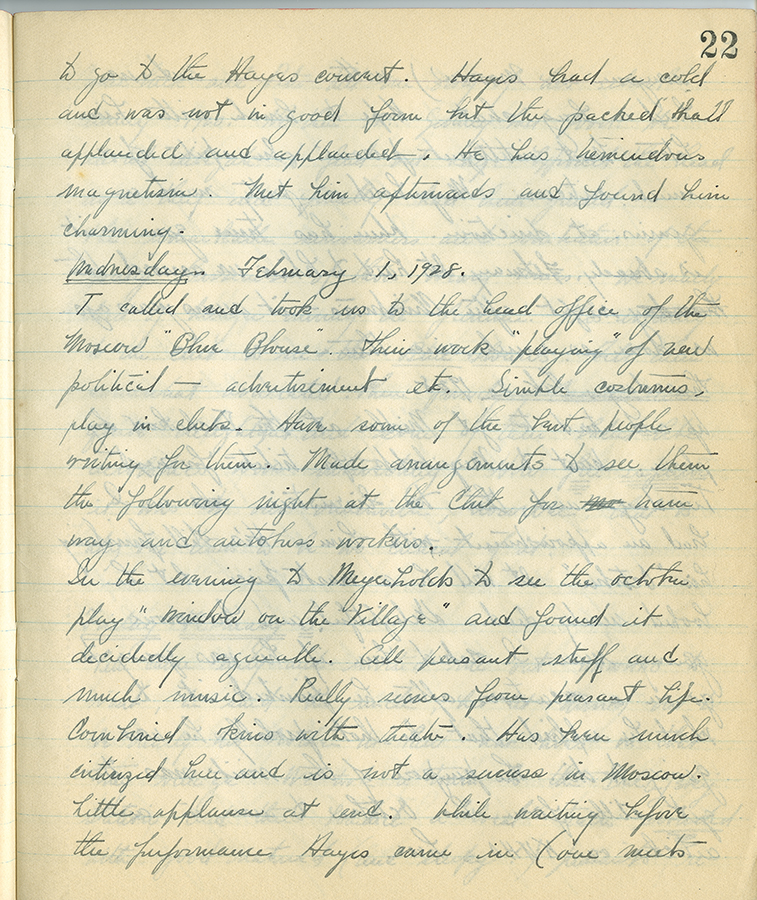 22
to go to the Hayes concert. Hayes had a cold
and was not in good form but the packed hall
applauded and applauded. He has tremendous
magnetism. Met him afterwards and found him
charming.
Wednesday. February 1, 1928.
T called and took us to the head office of the
Moscow "Blue Blouse". Their work "playing" of new
political — advertisement etc. Simple costumes,
play in clubs. Have some of the best people
writing for them. Made arrangements to see them
the following night at the Club for tram
way and autobuss workers.
In the evening to Meyerholds to see the october
play "Window on the Village" and found it
decidedly agreeable. All peasant stuff and
much music. Really scenes from peasant life.
Combined kino with theatre. Has been much
criticized here and is not a success in Moscow.
Little applause at end. While waiting before
the performance Hayes came in (one meets